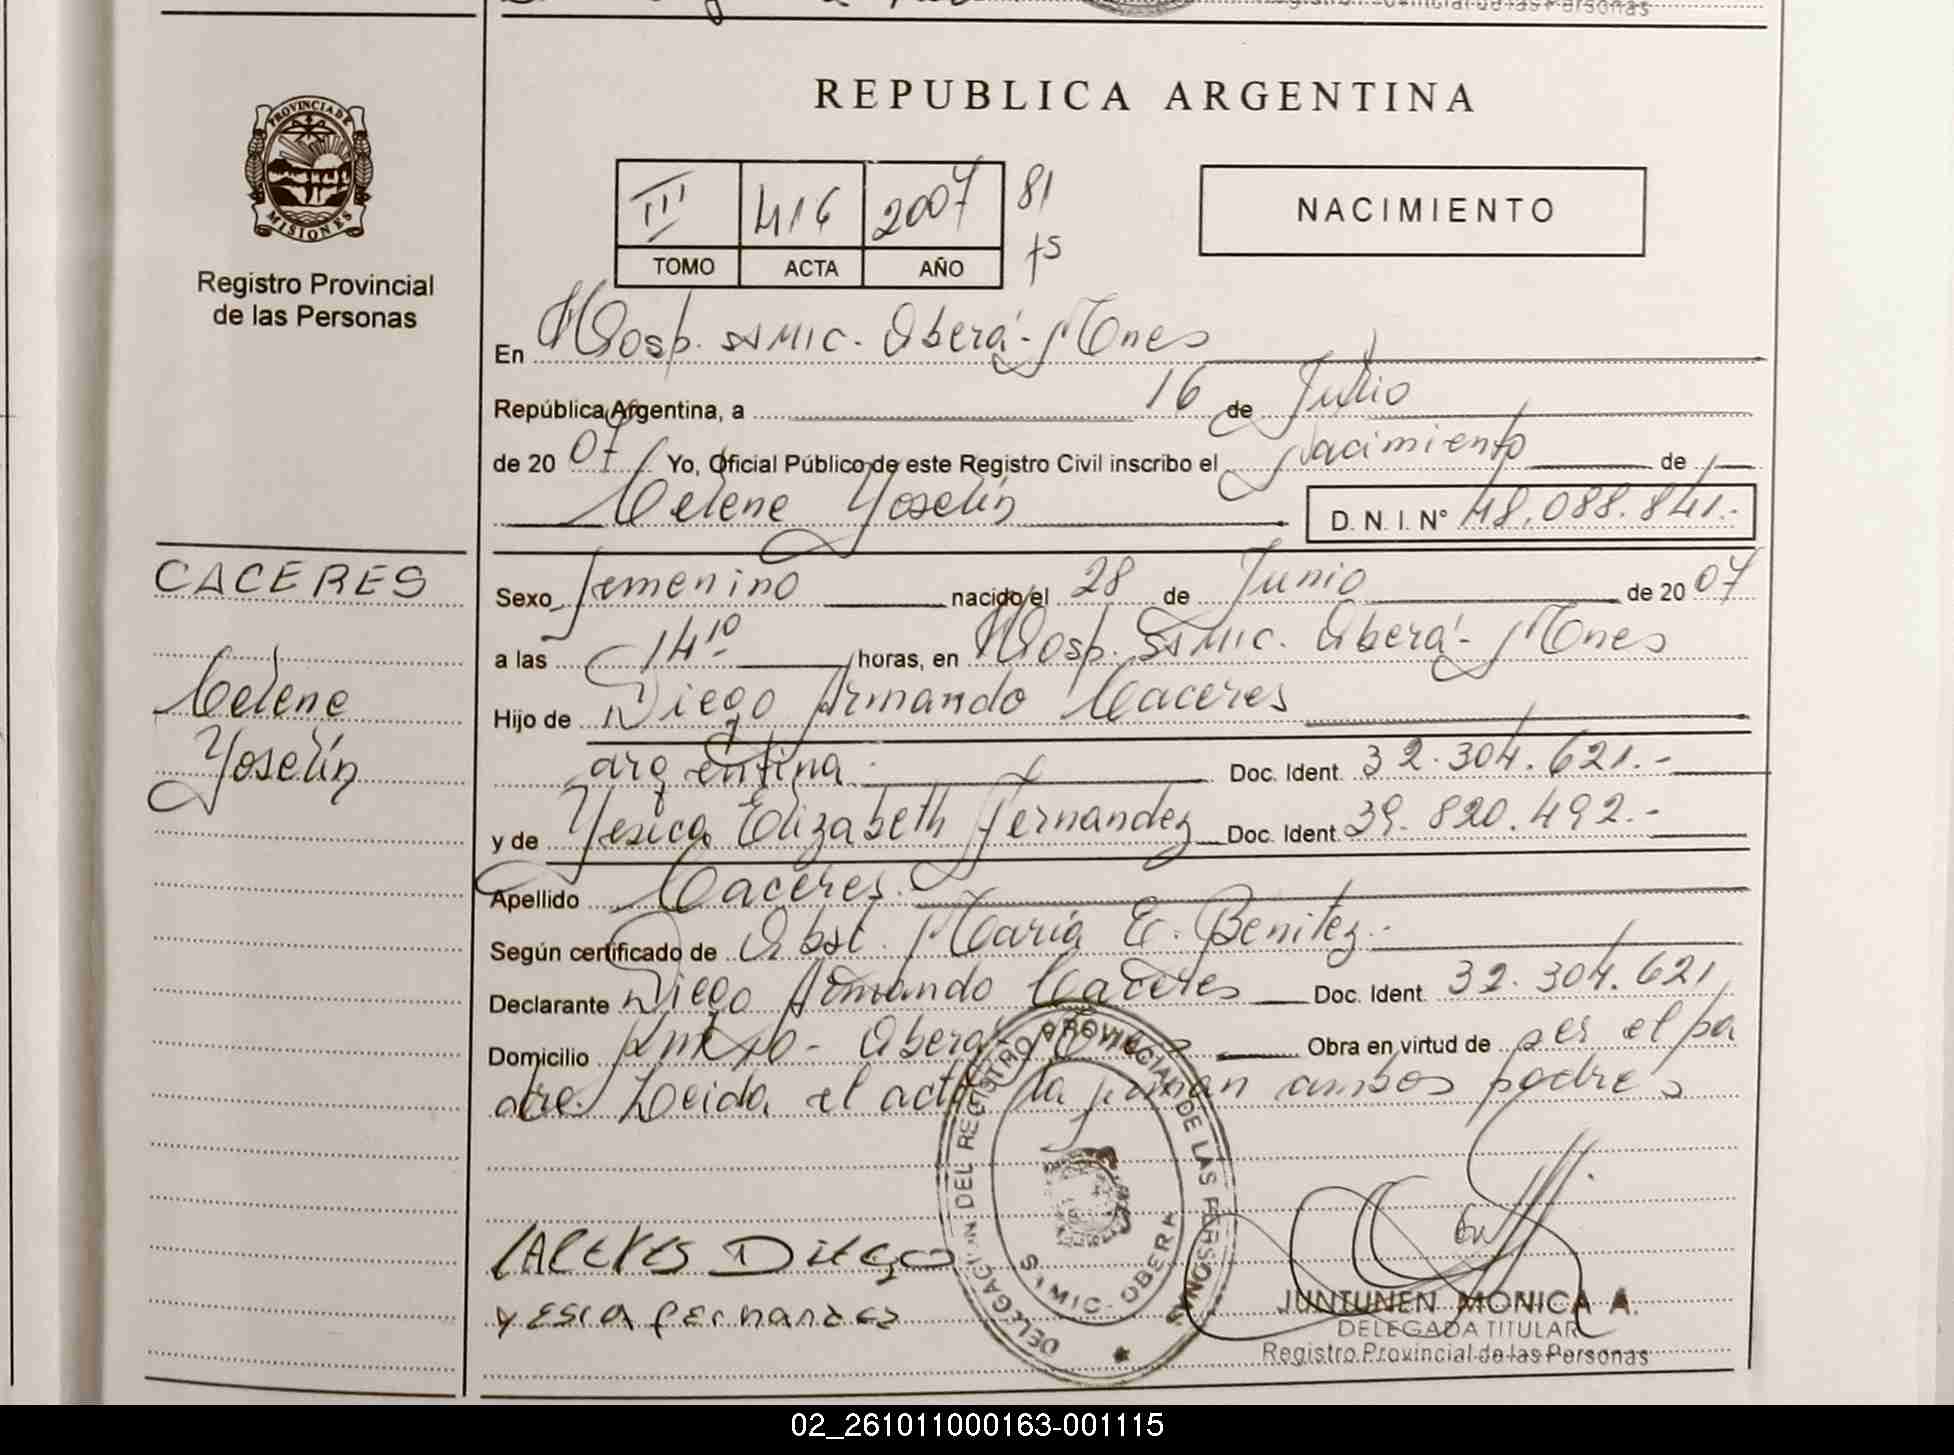 Registro Provincial de las Personas
REPUBLICA ARGENTINA
PROVINCIA DE
MISIONES
Registro Provincial
de las Personas
III 416 2007 81
TOMO ACTA AÑO fs
NACIMIENTO
En Hosp. SAMIC. Oberá - Mnes
República Argentina, a 16 de Julio
de 2007 Yo, Oficial Público de este Registro Civil inscribo el nacimiento de
Celene Yoselín D. N. I. N° 48.088.841.-
CACERES
Celene
Yoselín
Sexo femenino nacido el 28 de Junio de 2007
a las 14 10 horas, en Hosp. SAMIC. Oberá - Mnes
Hijo de Diego Armando Caceres
argentina Doc. Ident. 32.304.621.-
y de Yesica Elizabeth Fernandez Doc. Ident. 39.820.492.-
Apellido Caceres.
Según certificado de Obst. María E. Benitez.-
Declarante Diego Armando Caceres Doc. Ident. 32.304.621
Domicilio Oberá - Mnes Obra en virtud de ser el pa
dre. Leida el acta la firman ambos padres
CACERES DIEGO
yesica fernandez
DELEGACION DEL REGISTRO PROVINCIAL DE LAS PERSONAS
SAMIC - OBERA
JUNTUNEN MONICA A.
DELEGADA TITULAR
Registro Provincial de las Personas
02_261011000163-001115